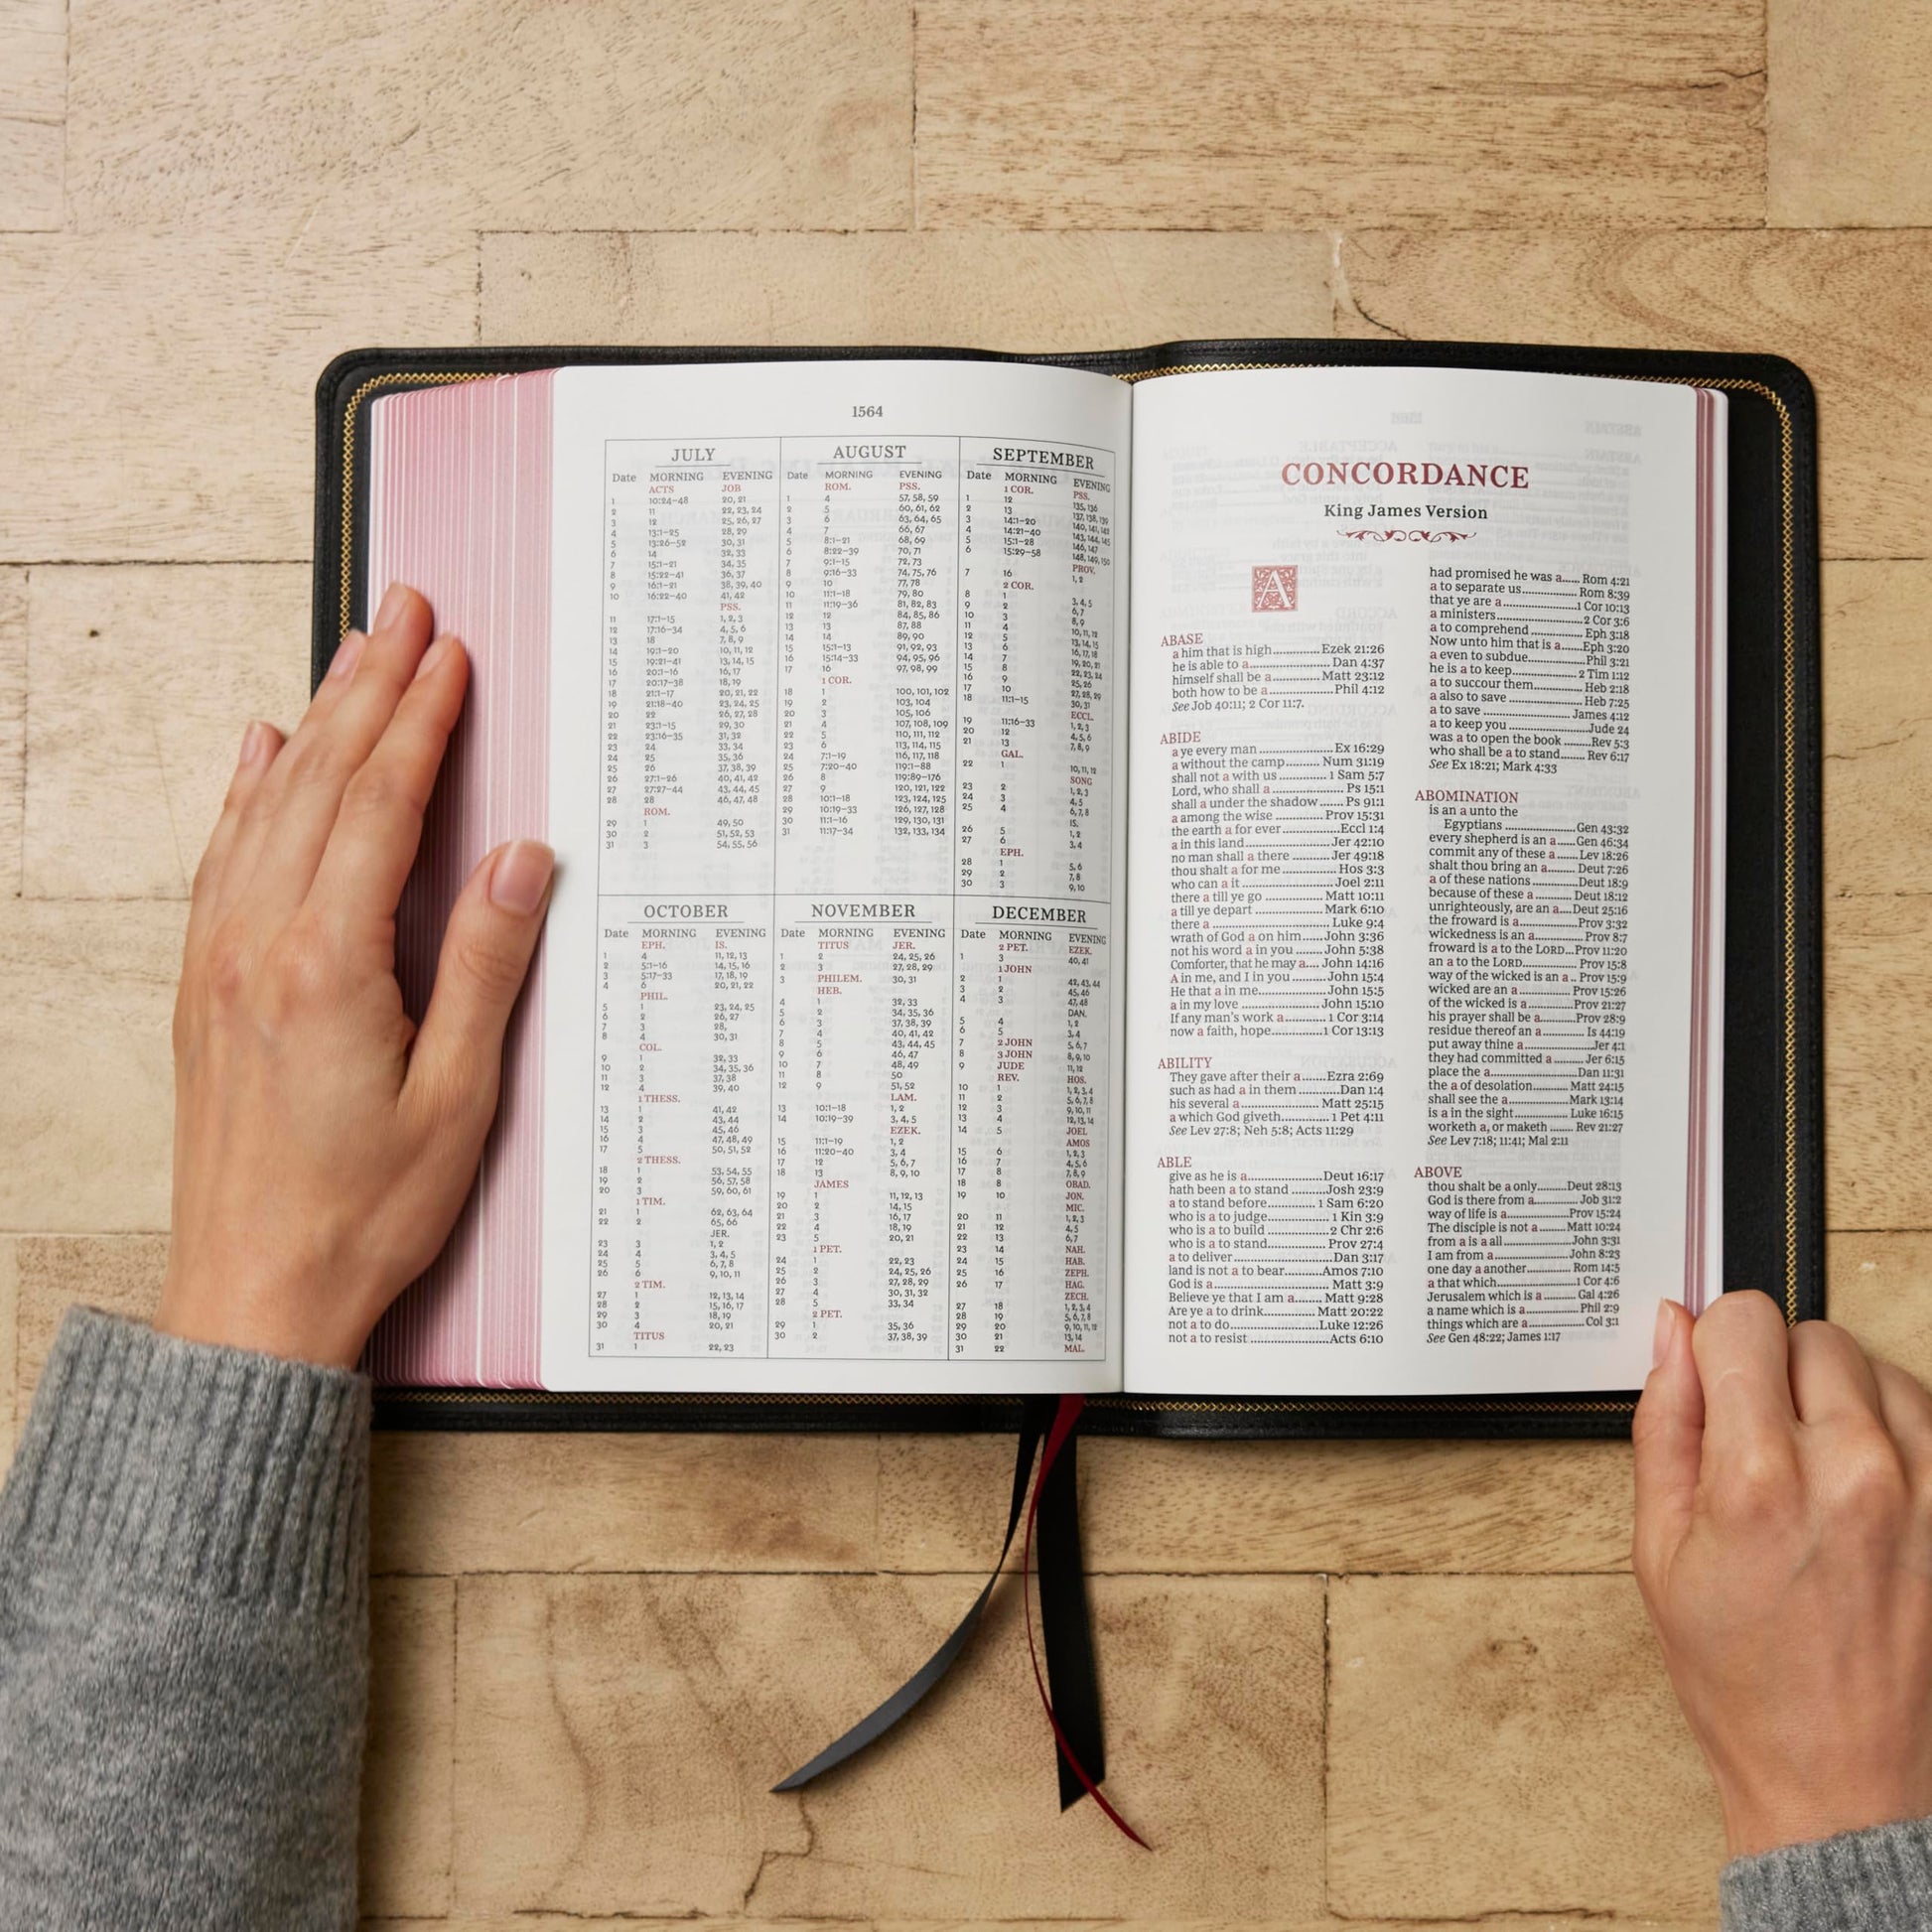 1564
JULY
Date MORNING EVENING
ACTS JOB
1 10:24–48 20, 21
2 11 22, 23, 24
3 12 25, 26, 27
4 13:1–25 28, 29
5 13:26–52 30, 31
6 14 32, 33
7 15:1–21 34, 35
8 15:22–41 36, 37
9 16:1–21 38, 39, 40
10 16:22–40 41, 42
PSS.
11 17:1–15 1, 2, 3
12 17:16–34 4, 5, 6
13 18 7, 8, 9
14 19:1–20 10, 11, 12
15 19:21–41 13, 14, 15
16 20:1–16 16, 17
17 20:17–38 18, 19
18 21:1–17 20, 21, 22
19 21:18–40 23, 24, 25
20 22 26, 27, 28
21 23:1–15 29, 30
22 23:16–35 31, 32
23 24 33, 34
24 25 35, 36
25 26 37, 38, 39
26 27:1–26 40, 41, 42
27 27:27–44 43, 44, 45
28 28 46, 47, 48
ROM.
29 1 49, 50
30 2 51, 52, 53
31 3 54, 55, 56
AUGUST
Date MORNING EVENING
ROM. PSS.
1 4 57, 58, 59
2 5 60, 61, 62
3 6 63, 64, 65
4 7 66, 67
5 8:1–21 68, 69
6 8:22–39 70, 71
7 9:1–15 72, 73
8 9:16–33 74, 75, 76
9 10 77, 78
10 11:1–18 79, 80
11 11:19–36 81, 82, 83
12 12 84, 85, 86
13 13 87, 88
14 14 89, 90
15 15:1–13 91, 92, 93
16 15:14–33 94, 95, 96
17 16 97, 98, 99
1 COR.
18 1 100, 101, 102
19 2 103, 104
20 3 105, 106
21 4 107, 108, 109
22 5 110, 111, 112
23 6 113, 114, 115
24 7:1–19 116, 117, 118
25 7:20–40 119:1–88
26 8 119:89–176
27 9 120, 121, 122
28 10:1–18 123, 124, 125
29 10:19–33 126, 127, 128
30 11:1–16 129, 130, 131
31 11:17–34 132, 133, 134
SEPTEMBER
Date MORNING EVENING
1 COR. PSS.
1 12 135, 136
2 13 137, 138, 139
3 14:1–20 140, 141, 142
4 14:21–40 143, 144, 145
5 15:1–28 146, 147
6 15:29–58 148, 149, 150
PROV.
7 16 1, 2
2 COR.
8 1 3, 4, 5
9 2 6, 7
10 3 8, 9
11 4 10, 11, 12
12 5 13, 14, 15
13 6 16, 17, 18
14 7 19, 20, 21
15 8 22, 23, 24
16 9 25, 26
17 10 27, 28, 29
18 11:1–15 30, 31
ECCL.
19 11:16–33 1, 2, 3
20 12 4, 5, 6
21 13 7, 8, 9
GAL.
22 1 10, 11, 12
SONG
23 2 1, 2, 3
24 3 4, 5
25 4 6, 7, 8
IS.
26 5 1, 2
27 6 3, 4
EPH.
28 1 5, 6
29 2 7, 8
30 3 9, 10
OCTOBER
Date MORNING EVENING
EPH. IS.
1 4 11, 12, 13
2 5:1–16 14, 15, 16
3 5:17–33 17, 18, 19
4 6 20, 21, 22
PHIL.
5 1 23, 24, 25
6 2 26, 27
7 3 28,
8 4 30, 31
COL.
9 1 32, 33
10 2 34, 35, 36
11 3 37, 38
12 4 39, 40
1 THESS.
13 1 41, 42
14 2 43, 44
15 3 45, 46
16 4 47, 48, 49
17 5 50, 51, 52
2 THESS.
18 1 53, 54, 55
19 2 56, 57, 58
20 3 59, 60, 61
1 TIM.
21 1 62, 63, 64
22 2 65, 66
JER.
23 3 1, 2
24 4 3, 4, 5
25 5 6, 7, 8
26 6 9, 10, 11
2 TIM.
27 1 12, 13, 14
28 2 15, 16, 17
29 3 18, 19
30 4 20, 21
TITUS
31 1 22, 23
NOVEMBER
Date MORNING EVENING
TITUS JER.
1 2 24, 25, 26
2 3 27, 28, 29
3 PHILEM. 30, 31
HEB.
4 1 32, 33
5 2 34, 35, 36
6 3 37, 38, 39
7 4 40, 41, 42
8 5 43, 44, 45
9 6 46, 47
10 7 48, 49
11 8 50
12 9 51, 52
LAM.
13 10:1–18 1, 2
14 10:19–39 3, 4, 5
EZEK.
15 11:1–19 1, 2
16 11:20–40 3, 4
17 12 5, 6, 7
18 13 8, 9, 10
JAMES
19 1 11, 12, 13
20 2 14, 15
21 3 16, 17
22 4 18, 19
23 5 20, 21
1 PET.
24 1 22, 23
25 2 24, 25, 26
26 3 27, 28, 29
27 4 30, 31, 32
28 5 33, 34
2 PET.
29 1 35, 36
30 2 37, 38, 39
DECEMBER
Date MORNING EVENING
2 PET. EZEK.
1 3 40, 41
1 JOHN
2 1 42, 43, 44
3 2 45, 46
4 3 47, 48
DAN.
5 4 1, 2
6 5 3, 4
7 2 JOHN 5, 6, 7
8 3 JOHN 8, 9, 10
9 JUDE 11, 12
REV. HOS.
10 1 1, 2, 3, 4
11 2 5, 6, 7, 8
12 3 9, 10, 11
13 4 12, 13, 14
14 5 JOEL
AMOS
15 6 1, 2, 3
16 7 4, 5, 6
17 8 7, 8, 9
18 OBAD.
19 10 JON.
MIC.
20 11 1, 2, 3
21 12 4, 5
22 13 6, 7
23 14 NAH.
24 15 HAB.
25 16 ZEPH.
26 17 HAG.
ZECH.
27 18 1, 2, 3, 4
28 19 5, 6, 7, 8
29 20 9, 10, 11, 12
30 21 13, 14
31 22 MAL.
CONCORDANCE
King James Version
A
ABASE
a him that is high.......... Ezek 21:26
he is able to a................. Dan 4:37
himself shall be a ........ Matt 23:12
both how to be a............. Phil 4:12
See Job 40:11; 2 Cor 11:7.
ABIDE
a ye every man ............... Ex 16:29
a without the camp....... Num 31:19
shall not a with us .......... 1 Sam 5:7
Lord, who shall a ............... Ps 15:1
shall a under the shadow ...... Ps 91:1
a among the wise .......... Prov 15:31
the earth a for ever........... Eccl 1:4
a in this land................. Jer 42:10
no man shall a there ....... Jer 49:18
thou shalt a for me .......... Hos 3:3
who can a it ................. Joel 2:11
there a till ye go ............ Matt 10:11
a till ye depart ............. Mark 6:10
there a ......................... Luke 9:4
wrath of God a on him..... John 3:36
not his word a in you ...... John 5:38
Comforter, that he may a.... John 14:16
A in me, and I in you ....... John 15:4
He that a in me............... John 15:5
a in my love ................. John 15:10
If any man's work a ........ 1 Cor 3:14
now a faith, hope........... 1 Cor 13:13
ABILITY
They gave after their a...... Ezra 2:69
such as had a in them ......... Dan 1:4
his several a................ Matt 25:15
a which God giveth.......... 1 Pet 4:11
See Lev 27:8; Neh 5:8; Acts 11:29
ABLE
give as he is a................ Deut 16:17
hath been a to stand ........ Josh 23:9
a to stand before............ 1 Sam 6:20
who is a to judge.............. 1 Kin 3:9
who is a to build .............. 2 Chr 2:6
who is a to stand............. Prov 27:4
a to deliver.................... Dan 3:17
land is not a to bear......... Amos 7:10
God is a........................ Matt 3:9
Believe ye that I am a....... Matt 9:28
Are ye a to drink............. Matt 20:22
not a to do................... Luke 12:26
not a to resist ............... Acts 6:10
had promised he was a...... Rom 4:21
a to separate us............. Rom 8:39
that ye are a................. 1 Cor 10:13
a ministers.................... 2 Cor 3:6
a to comprehend ............. Eph 3:18
Now unto him that is a...... Eph 3:20
a even to subdue............. Phil 3:21
he is a to keep............... 2 Tim 1:12
a to succour them............ Heb 2:18
a also to save ................ Heb 7:25
a to save ..................... James 4:12
a to keep you ................ Jude 24
was a to open the book ....... Rev 5:3
who shall be a to stand....... Rev 6:17
See Ex 18:21; Mark 4:33
ABOMINATION
is an a unto the
Egyptians ................... Gen 43:32
every shepherd is an a...... Gen 46:34
commit any of these a ...... Lev 18:26
shalt thou bring an a........ Deut 7:26
a of these nations ........... Deut 18:9
because of these a........... Deut 18:12
unrighteously, are an a.... Deut 25:16
the froward is a.............. Prov 3:32
wickedness is an a............ Prov 8:7
froward is a to the LORD... Prov 11:20
an a to the LORD............. Prov 15:8
way of the wicked is an a.. Prov 15:9
wicked are an a.............. Prov 15:26
of the wicked is a............ Prov 21:27
his prayer shall be a......... Prov 28:9
residue thereof an a......... Is 44:19
put away thine a.............. Jer 4:1
they had committed a ....... Jer 6:15
place the a................... Dan 11:31
the a of desolation.......... Matt 24:15
shall see the a............... Mark 13:14
is a in the sight.............. Luke 16:15
worketh a, or maketh ....... Rev 21:27
See Lev 7:18; 11:41; Mal 2:11
ABOVE
thou shalt be a only......... Deut 28:13
God is there from a.......... Job 31:2
way of life is a............... Prov 15:24
The disciple is not a ........ Matt 10:24
from a is a all................ John 3:31
I am from a................... John 8:23
one day a another............ Rom 14:5
a that which.................. 1 Cor 4:6
Jerusalem which is a ........ Gal 4:26
a name which is a............ Phil 2:9
things which are a............ Col 3:1
See Gen 48:22; James 1:17